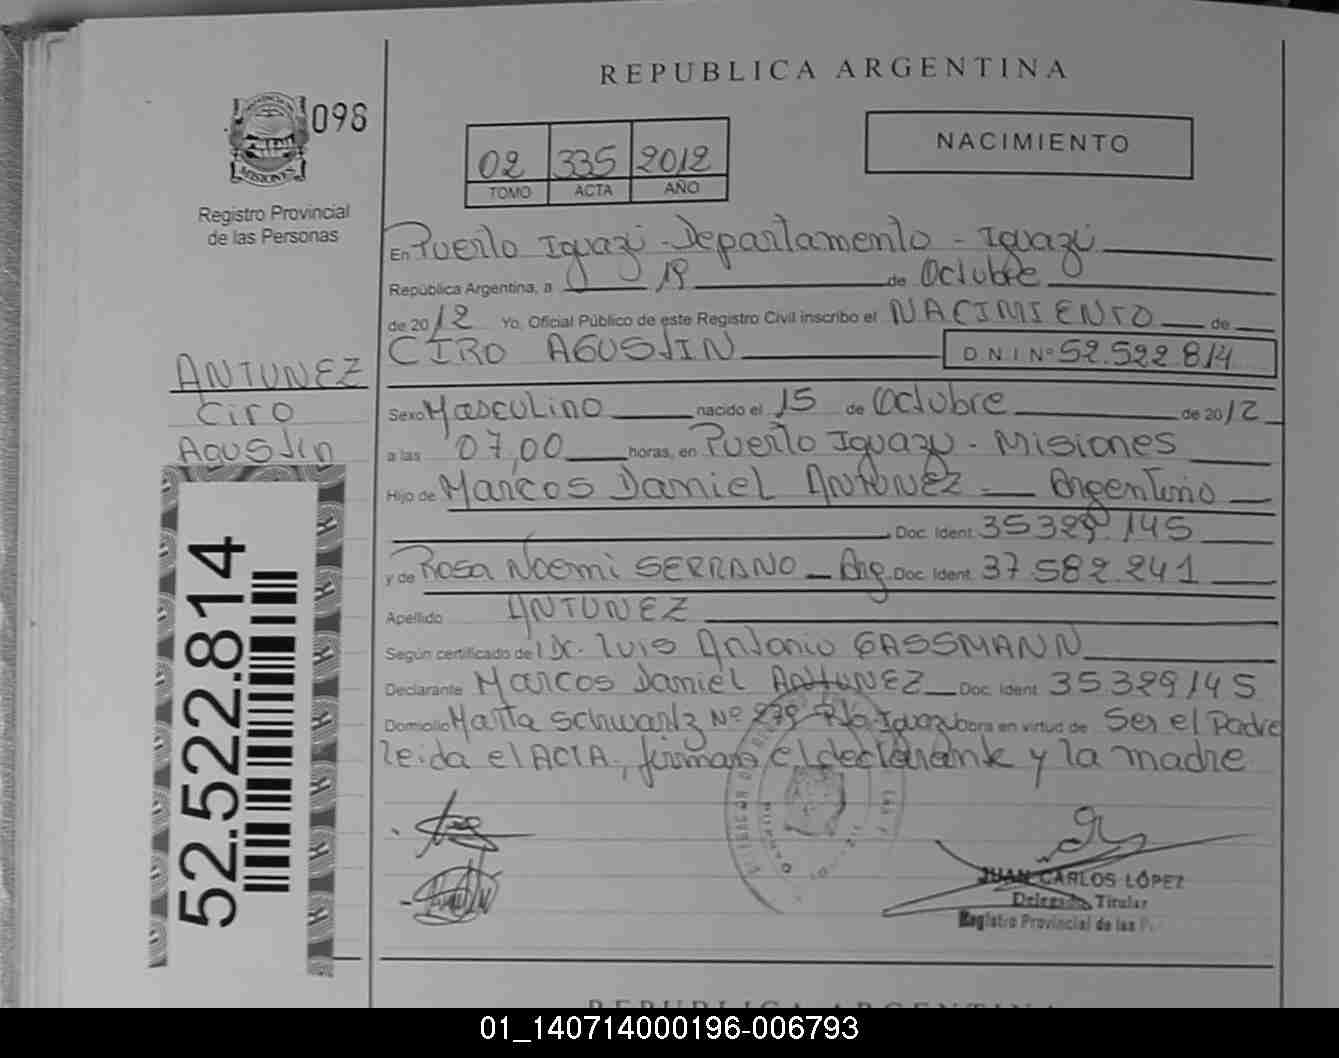 REPUBLICA ARGENTINA
098
MISIONES
Registro Provincial
de las Personas
02 335 2012
TOMO ACTA AÑO
NACIMIENTO
En Puerto Iguazú - Departamento - Iguazú
República Argentina, a 19 de Octubre
de 2012 Yo, Oficial Público de este Registro Civil inscribo el NACIMIENTO de
CIRO AGUSTIN D N I Nº 52.522.814
ANTUNEZ
Ciro
Agustin
Sexo Masculino nacido el 15 de Octubre de 2012
a las 07,00 horas, en Puerto Iguazu - Misiones
Hijo de Marcos Daniel ANTUNEZ Argentino
Doc. Ident. 35.329.145
y de Rosa Noemi SERRANO Arg. Doc. Ident. 37.582.241
Apellido ANTUNEZ
Según certificado de Dr. Luis Antonio GASSMANN
Declarante Marcos Daniel ANTUNEZ Doc. Ident. 35329145
Domicilio Marta Schwartz Nº 279 Pto. Iguazu obra en virtud de Ser el Padre
leida el ACTA, firman el declarante y la madre
52.522.814
JUAN CARLOS LÓPEZ
Delegado Titular
Registro Provincial de las
REPUBLICA ARGENTINA
01_140714000196-006793